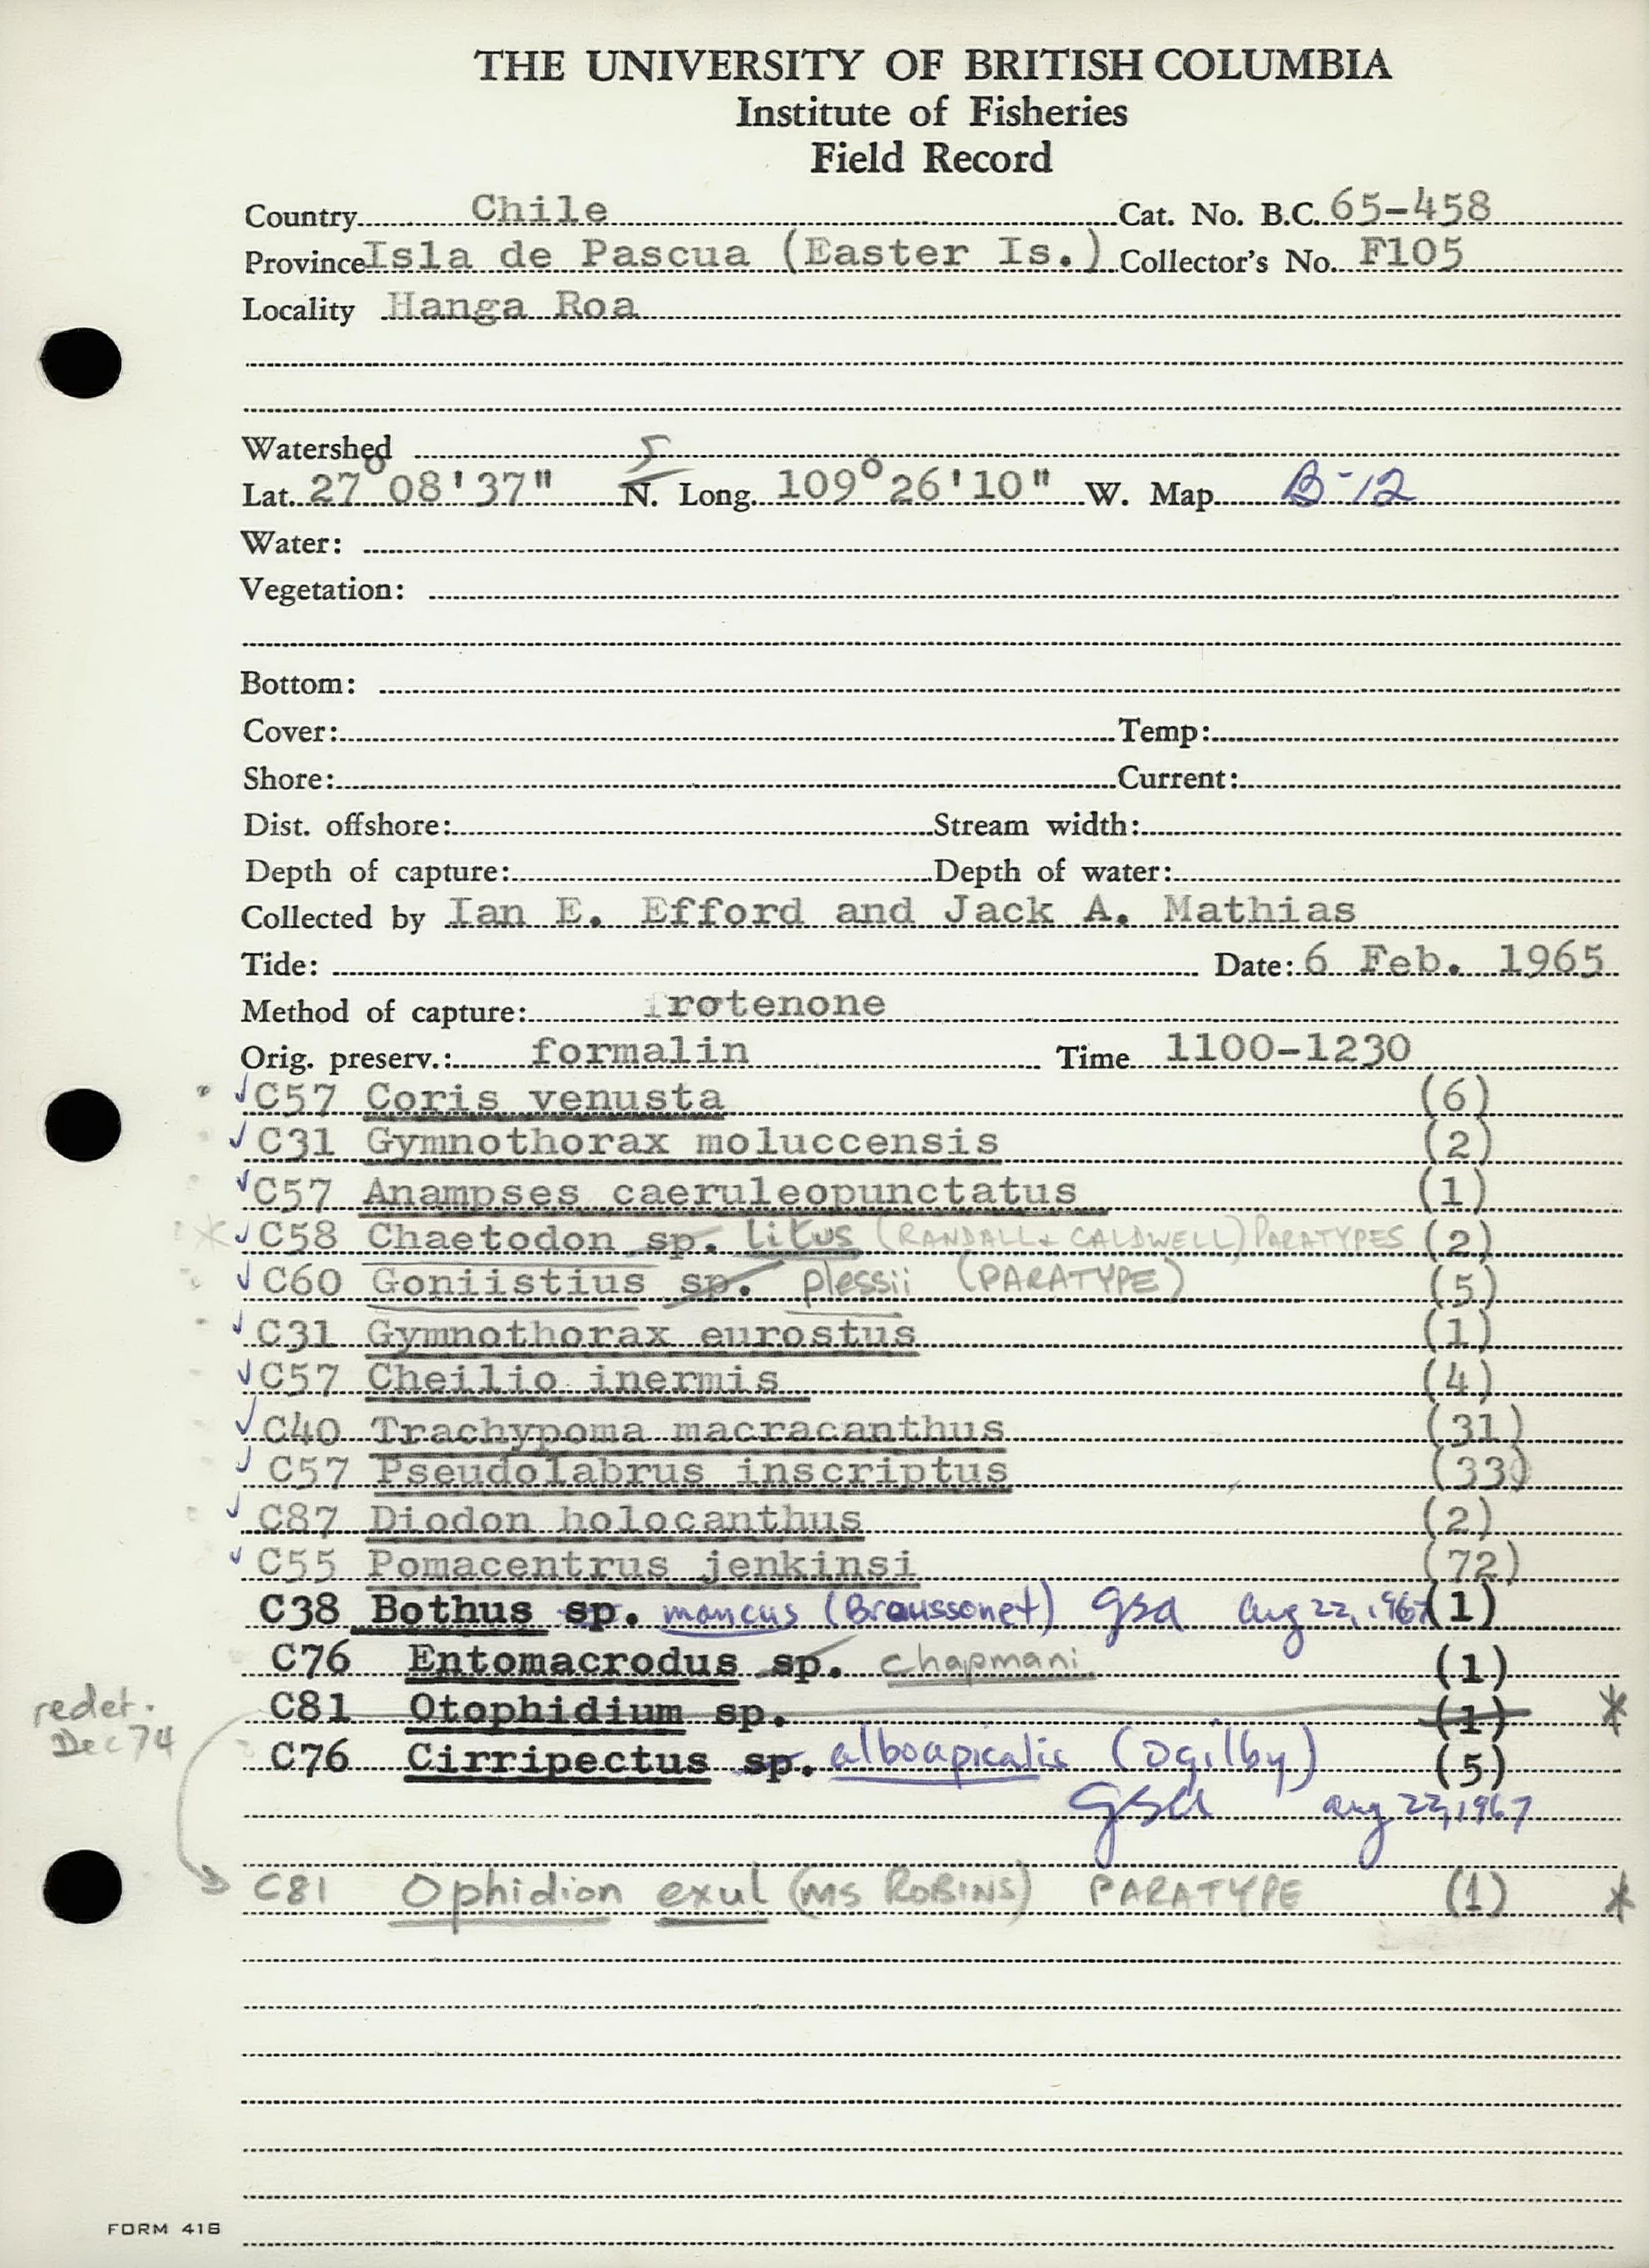 THE UNIVERSITY OF BRITISH COLUMBIA
Institute of Fisheries
Field Record
Country Chile Cat. No. B.C. 65-458
Province Isla de Pascua (Easter Is.) Collector's No. F105
Locality Hanga Roa
Watershed
Lat. 27°08'37" N. S Long. 109°26'10" W. Map B-12
Water:
Vegetation:
Bottom:
Cover: Temp:
Shore: Current:
Dist. offshore: Stream width:
Depth of capture: Depth of water:
Collected by Ian E. Efford and Jack A. Mathias
Tide: Date: 6 Feb. 1965
Method of capture: rotenone
Orig. preserv.: formalin Time 1100-1230
✓ C57 Coris venusta (6)
✓ C31 Gymnothorax moluccensis (2)
✓ C57 Anampses caeruleopunctatus (1)
* ✓ C58 Chaetodon sp. litus (RANDALL & CALDWELL) PARATYPES (2)
✓ C60 Goniistius sp. plessii (PARATYPE) (5)
✓ C31 Gymnothorax eurostus (1)
✓ C57 Cheilio inermis (4)
✓ C40 Trachypoma macracanthus (31)
✓ C57 Pseudolabrus inscriptus (33)
✓ C87 Diodon holocanthus (2)
✓ C55 Pomacentrus jenkinsi (72)
C38 Bothus sp. mancus (Braussonet) gsa Aug 22, 1967 (1)
C76 Entomacrodus sp. chapmani (1)
redet. Dec 74
C81 Otophidium sp. (1) *
C76 Cirripectus sp. alboapicalis (Ogilby) (5)
gsa aug 22, 1967
C81 Ophidion exul (MS ROBINS) PARATYPE (1) *
FORM 418